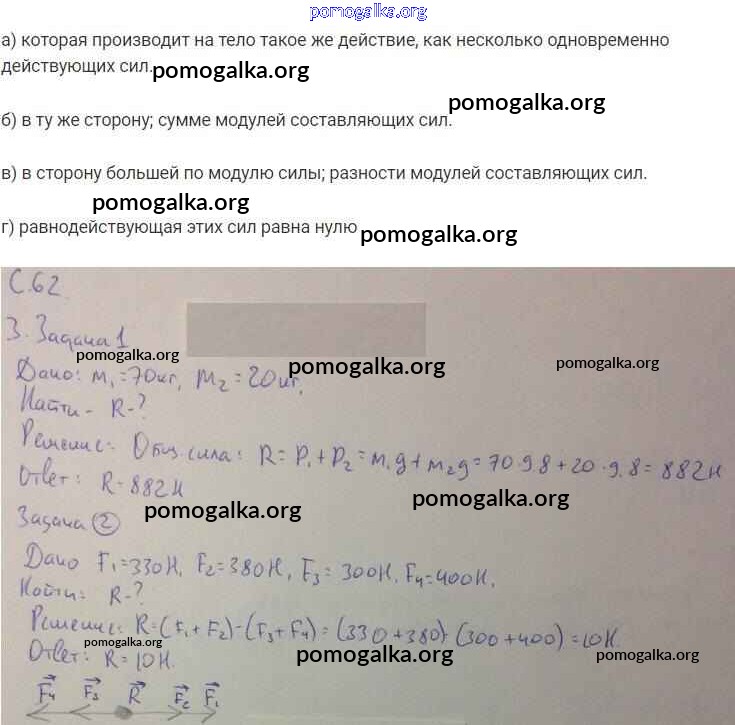 pomogalka.org
а) которая производит на тело такое же действие, как несколько одновременно
действующих сил. pomogalka.org
pomogalka.org
б) в ту же сторону; сумме модулей составляющих сил.
в) в сторону большей по модулю силы; разности модулей составляющих сил.
pomogalka.org
г) равнодействующая этих сил равна нулю pomogalka.org
С.62
3. Задача 1
pomogalka.org pomogalka.org pomogalka.org
Дано: m₁=70кг, m₂=20кг,
Найти - R-?
Решение: Общ. сила: R=P₁+P₂=m₁g+m₂g=70·9,8+20·9,8=882Н
Ответ: R=882Н
pomogalka.org pomogalka.org
Задача 2
Дано F₁=330Н, F₂=380Н, F₃=300Н, F₄=400Н.
Найти: R-?
Решение: R=(F₁+F₂)-(F₃+F₄)=(330+380)-(300+400)=10Н
pomogalka.org pomogalka.org pomogalka.org
Ответ: R=10Н.
F₄ F₃ R F₂ F₁